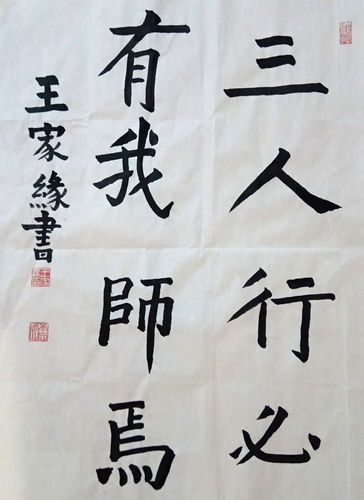 三人行必
有我師焉
王家緣書